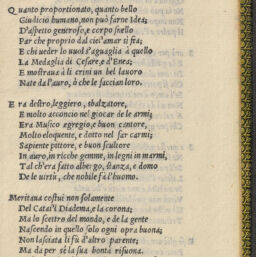 Quanto proportionato, quanto bello
Giudicio humano, non può farne Idea;
D'aspetto generoso, e corpo snello
Par che proprio dal ciel'amar si fea;
E chi ueder lo uuol s'aguaglia à quello
La Medaglia di Cesare, e d'Enea;
E mostraua à li crini un bel lauoro
Nate da l'auro, ò che le faccian loro.
Era destro, leggiero, sbalzatore,
E molto acconcio nel giocar de le armi;
Era Musico egregio, e buon cantore,
Molto eloquente, e dotto nel far carmi;
Sapiente pittore, e buon scultore
In auro, in ricche gemme, in legni in marmi,
Tal ch'era fatto albergo, stanza, e domo
De le uirtù, che nobile fà l'huomo.
Meritaua costui non solamente
Del Catai'l Diadema, e la corona;
Ma lo scettro del mondo, e de la gente
Nascendo in quello solo ogni opra buona;
Non lasciata li fù d'altro parente;
Ma da per sè la sua bontà risuona.